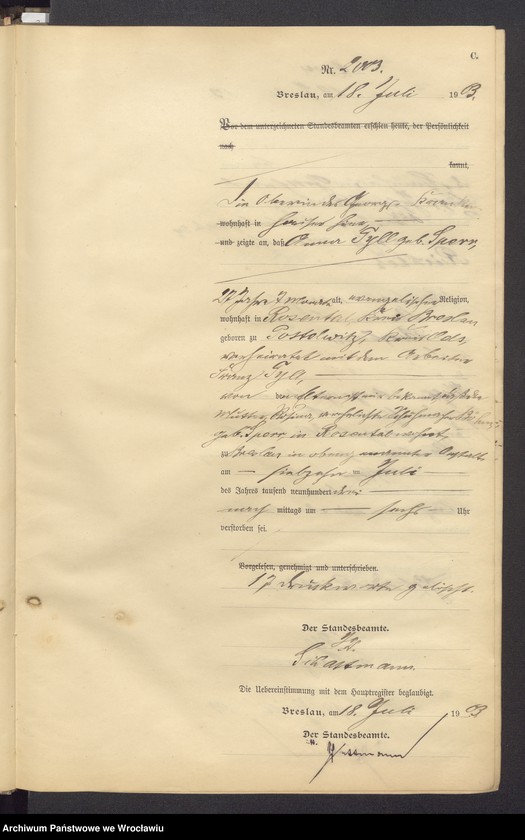 C.
Nr. 2003.
Breslau, am 18. Juli 1903.
Vor dem unterzeichneten Standesbeamten erschien heute, der Persönlichkeit
nach
kannt,
Die Oberin des
wohnhaft in
und zeigte an, daß Anna Gyll geb. Sporn,
27 Jahre 7 Monate alt, evangelischer Religion,
wohnhaft in Rosental, Kreis Breslau
geboren zu Postelwitz, Kreis Oels,
verheiratet mit dem Arbeiter
Franz Gyll,
von der Eltern nur bekannt ist, daß die
Mutter, Rosina,
geb. Sporn in Rosental wohnt,
zu Breslau in oben Anstalt
am siebzehn ten Juli
des Jahres tausend neunhundert drei
nach mittags um sechs Uhr
verstorben sei.
Vorgelesen, genehmigt und unterschrieben.
17 Druckworte gelöscht.
Der Standesbeamte.
Die Uebereinstimmung mit dem Hauptregister beglaubigt.
Breslau, am 18. Juli 1903
Der Standesbeamte.
Archiwum Państwowe we Wrocławiu